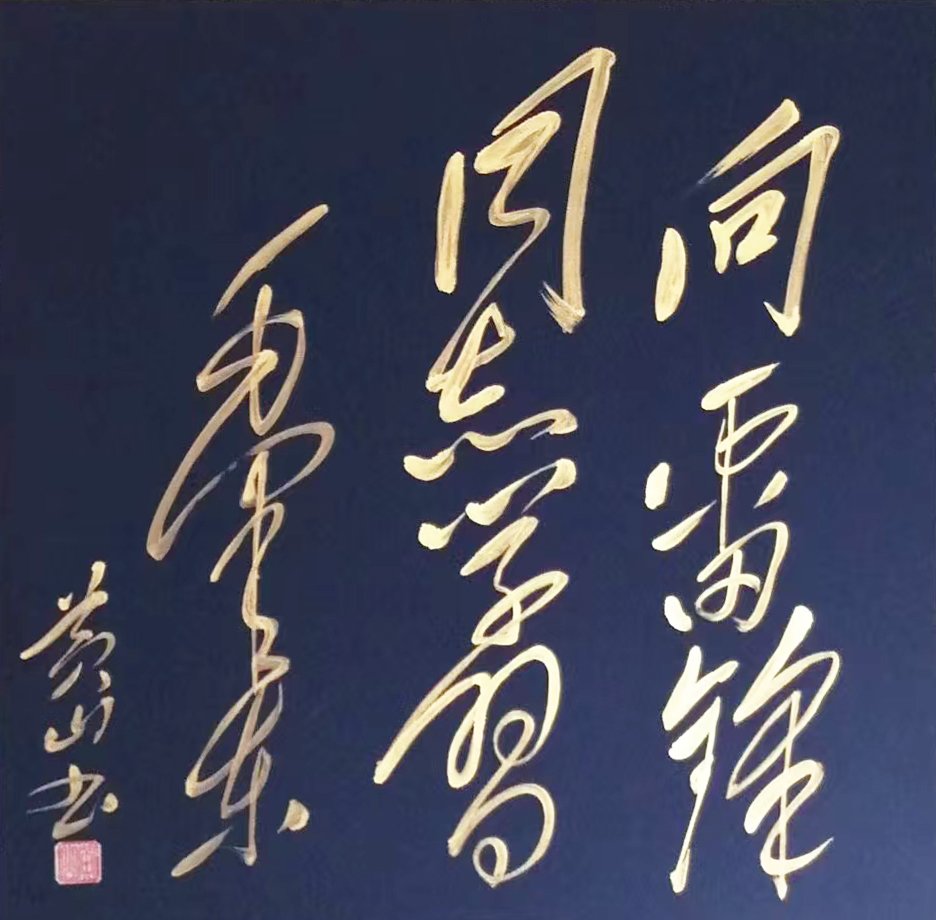 向雷锋
同志学习
毛泽东
黄山书